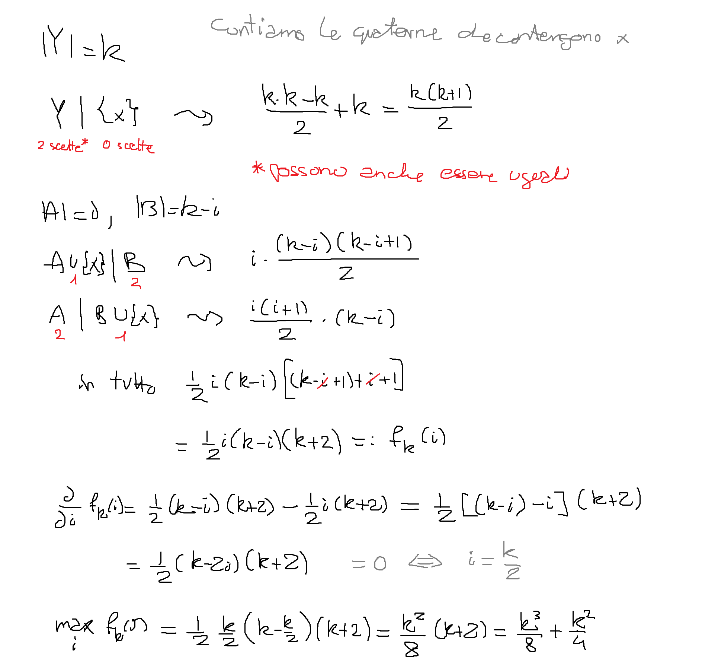 Contiamo le quaterne che contengono x
|Y| = k
Y | {x} ⇝ (k·k−k)/2 + k = k(k+1)/2
2 scelte* 0 scelte
* possono anche essere uguali
|A| = i, |B| = k−i
A∪{x} | B ⇝ i · (k−i)(k−i+1)/2
1 2
A | B∪{x} ⇝ i(i+1)/2 · (k−i)
2 1
In tutto 1/2 i(k−i)[(k−i+1)+i+1]
= 1/2 i(k−i)(k+2) =: f_k(i)
∂/∂i f_k(i) = 1/2 (k−i)(k+2) − 1/2 i(k+2) = 1/2 [(k−i)−i](k+2)
= 1/2 (k−2i)(k+2) = 0 ⇔ i = k/2
max_i f_k(i) = 1/2 k/2 (k−k/2)(k+2) = k²/8 (k+2) = k³/8 + k²/4